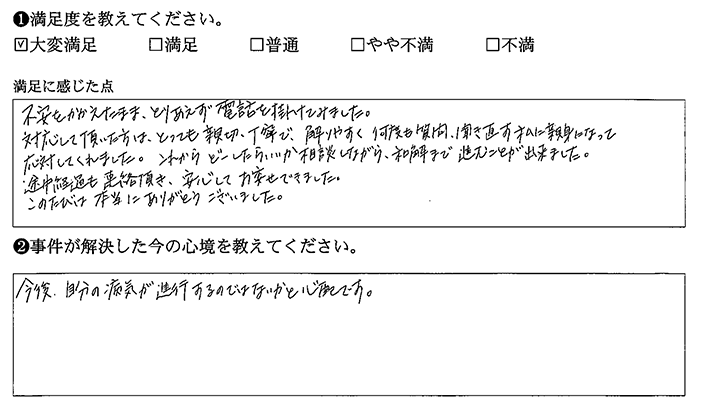 ❶満足度を教えてください。
☑大変満足 □満足 □普通 □やや不満 □不満
満足に感じた点
不安をかかえたまま、とりあえず電話を掛けてみました。
対応して頂いた方は、とっても親切、丁寧で、解りやすく何度も質問、聞き直す私に親身になって
応対してくれました。これからどーしたらいいか相談しながら、和解まで進むことが出来ました。
途中経過も連絡頂き、安心してお任せできました。
このたびは本当にありがとうございました。
❷事件が解決した今の心境を教えてください。
今後、自分の病気が進行するのではないかと心配です。